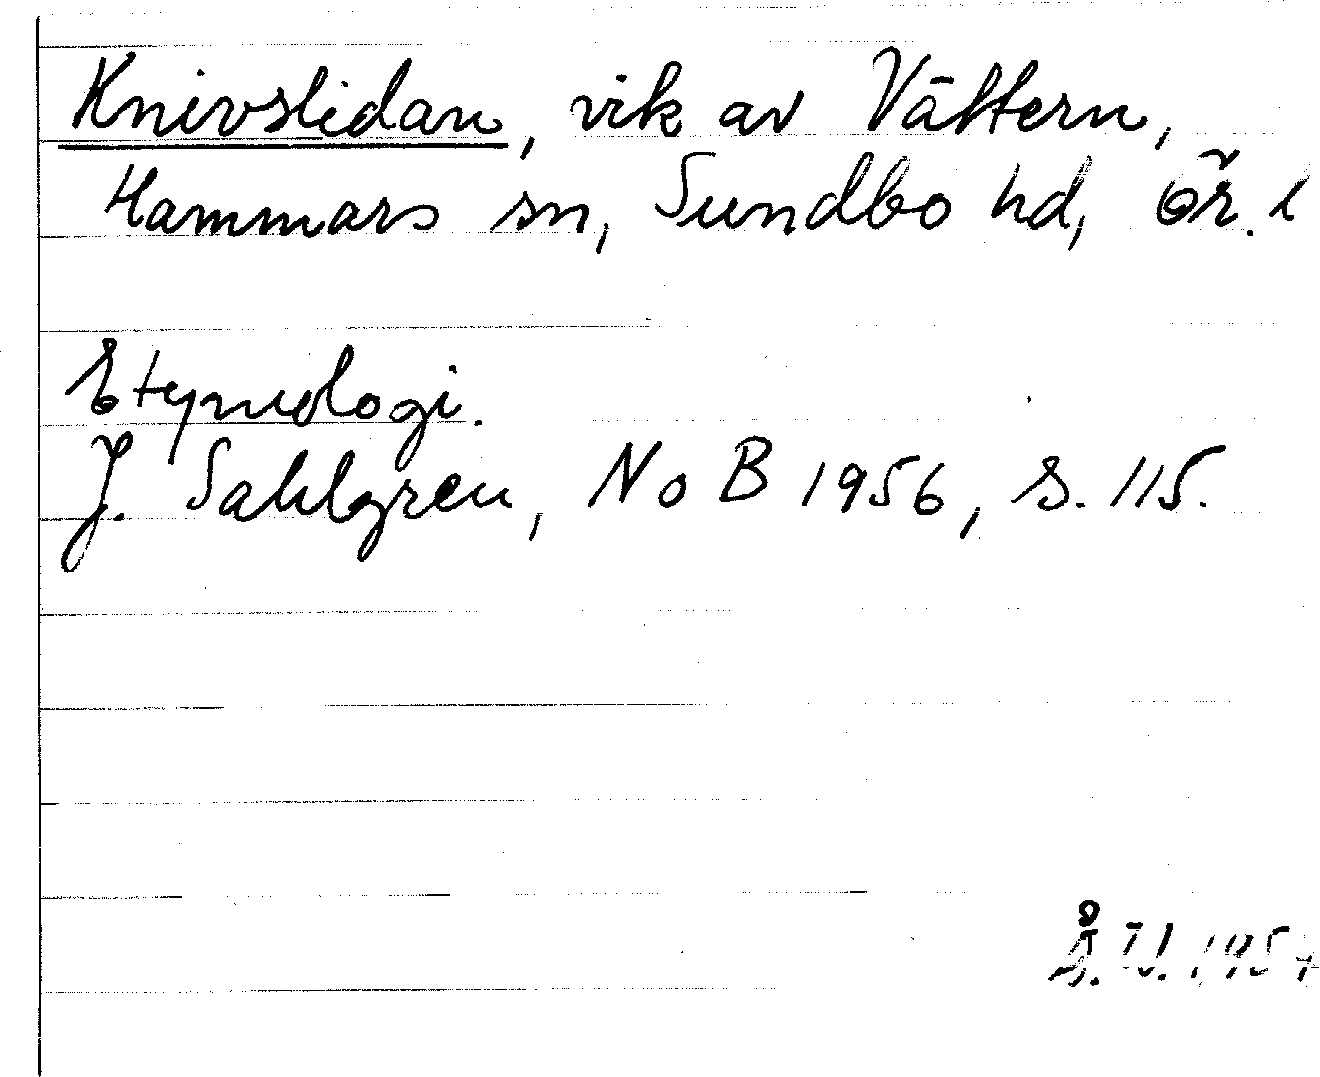 Knivslidan, vik av Vättern,
Hammars sn, Sundbo hd, Ör. l
Etymologi.
J. Sahlgren, NoB 1956, s. 115.
1957